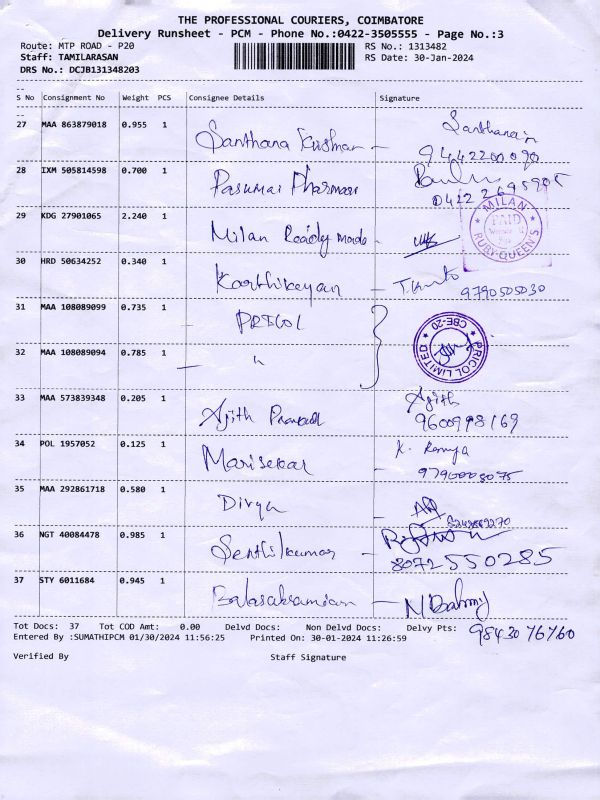 THE PROFESSIONAL COURIERS, COIMBATORE
Delivery Runsheet - PCM - Phone No.:0422-3505555 - Page No.:3
Route: MTP ROAD - P20 RS No.: 1313482
Staff: TAMILARASAN RS Date: 30-Jan-2024
DRS No.: DCJB131348203
S No Consignment No Weight PCS Consignee Details Signature
27 MAA 863879018 0.955 1 Santhana Kushmar - Santhana
9442200090
28 IXM 505814598 0.700 1 Pasumai Pharmasi
0422 2695905
29 KDG 27901065 2.240 1 Milan Readymade -
MILAN PAID RUBY-QUEEN'S
30 HRD 50634252 0.340 1 Karthikeyan -
9790505030
31 MAA 108089099 0.735 1 PRICOL
PRICOL LIMITED CBE-20
32 MAA 108089094 0.785 1 - "
33 MAA 573839348 0.205 1 Ajith Ajith
9600998169
34 POL 1957052 0.125 1 Marisekar - K. Ramya
9790003075
35 MAA 292861718 0.580 1 Divya -
36 NGT 40084478 0.985 1 Senthilkumar -
8072550285
37 STY 6011684 0.945 1 Balasubramian -
Tot Docs: 37 Tot COD Amt: 0.00 Delvd Docs: Non Delvd Docs: Delvy Pts: 9843076760
Entered By :SUMATHIPCM 01/30/2024 11:56:25 Printed On: 30-01-2024 11:26:59
Verified By Staff Signature